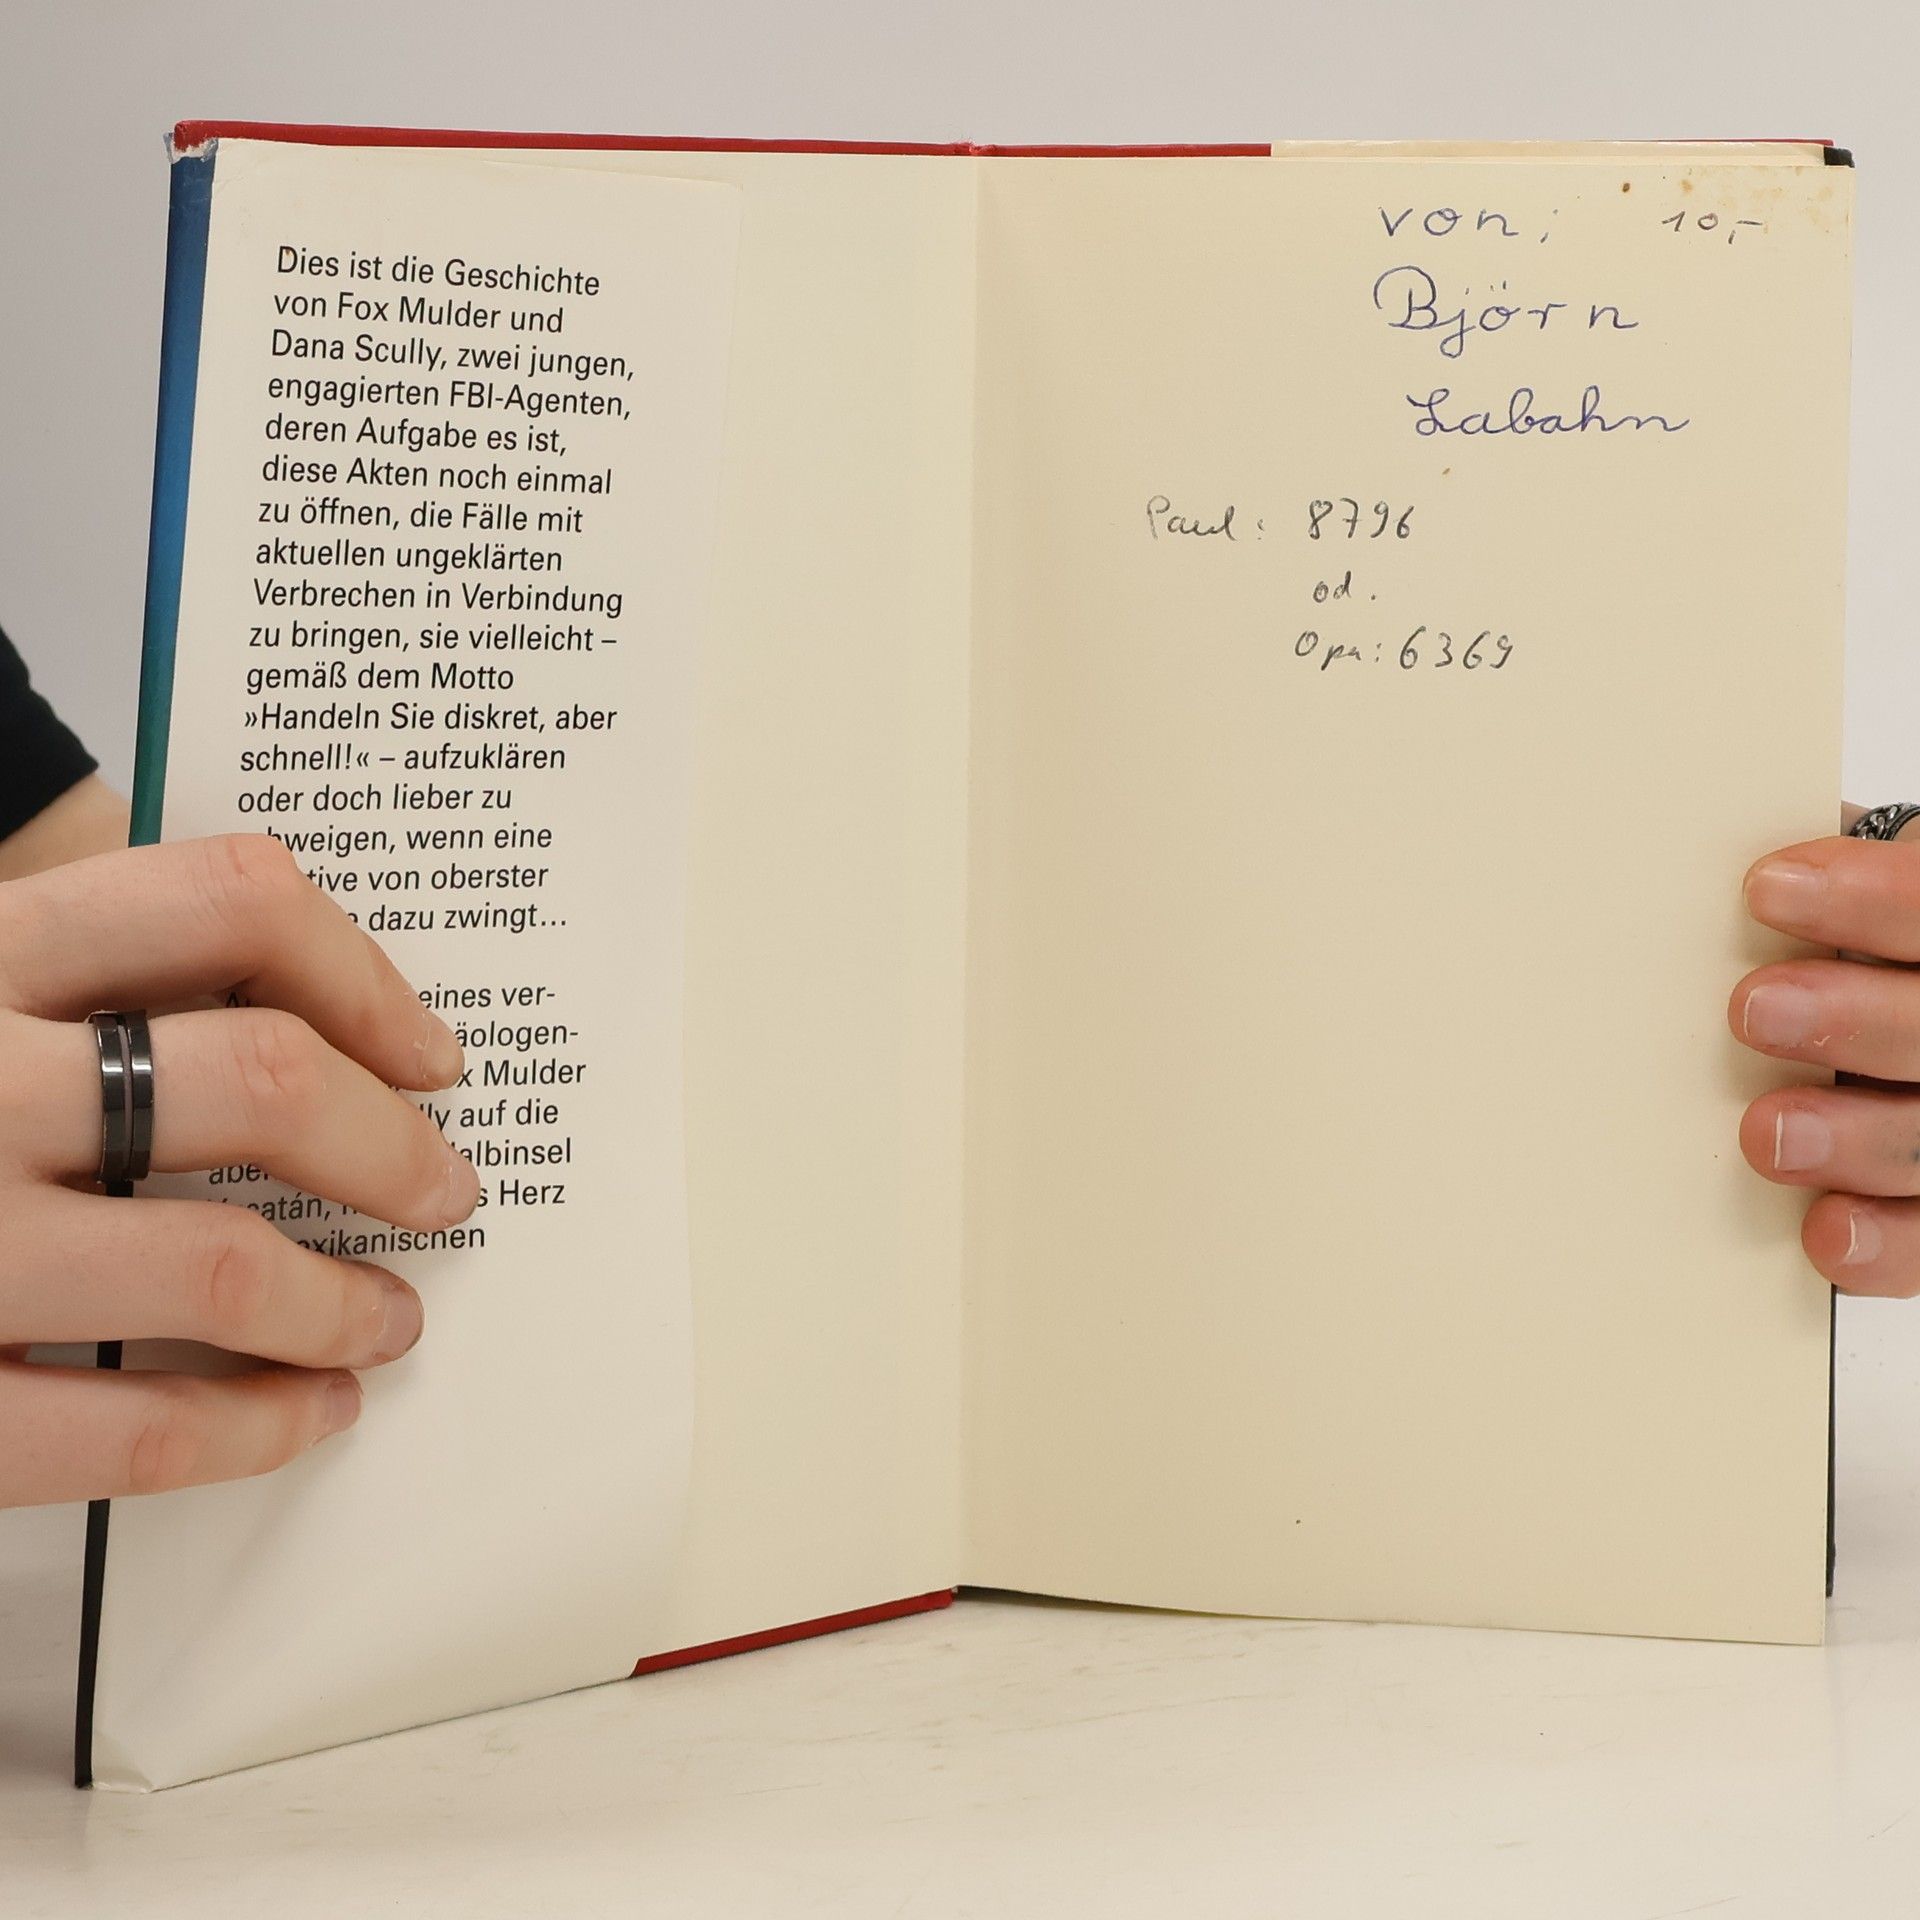 Dies ist die Geschichte
von Fox Mulder und
Dana Scully, zwei jungen,
engagierten FBI-Agenten,
deren Aufgabe es ist,
diese Akten noch einmal
zu öffnen, die Fälle mit
aktuellen ungeklärten
Verbrechen in Verbindung
zu bringen, sie vielleicht –
gemäß dem Motto
»Handeln Sie diskret, aber
schnell!« – aufzuklären
oder doch lieber zu
wenn eine
von oberster
dazu zwingt...
eines ver-
Mulder
auf die
Herz
von; 10,-
Björn
Labahn
Paul: 8796
od.
Opa: 6369